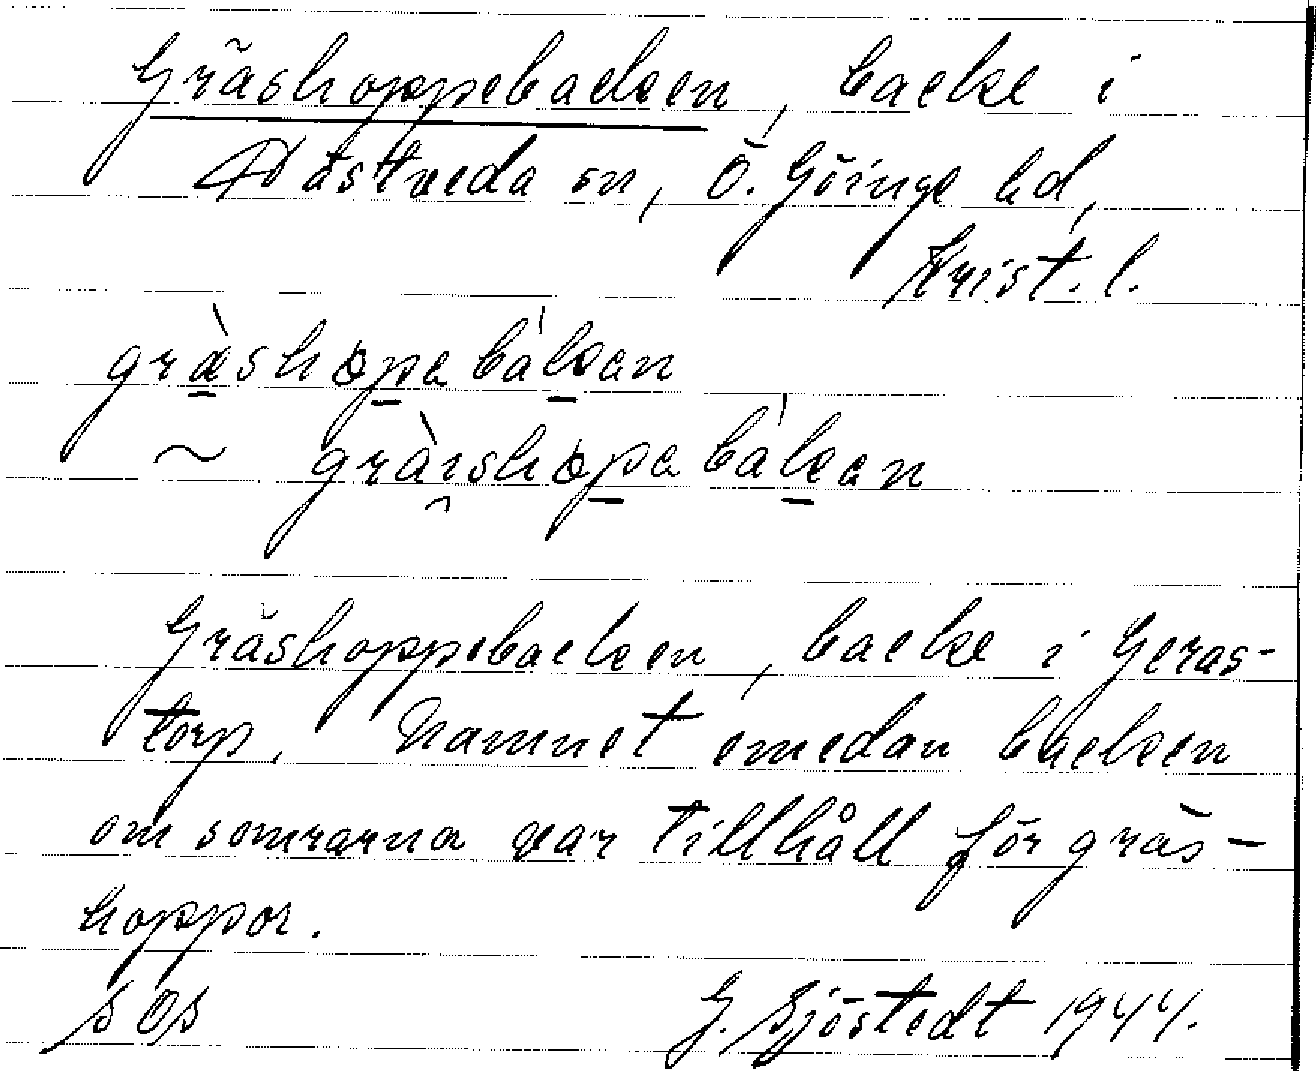 Gräshoppebacken, backe i
Hästveda sn, Ö. Göinge hd,
Krist. l.
gràshopabákan
~ gràishopabákan
Gräshoppebacken, backe i Geras-
torp. Namnet emedan backen
om somrarna var tillhåll för gräs-
hoppor.
SOS G. Sjöstedt 1944.